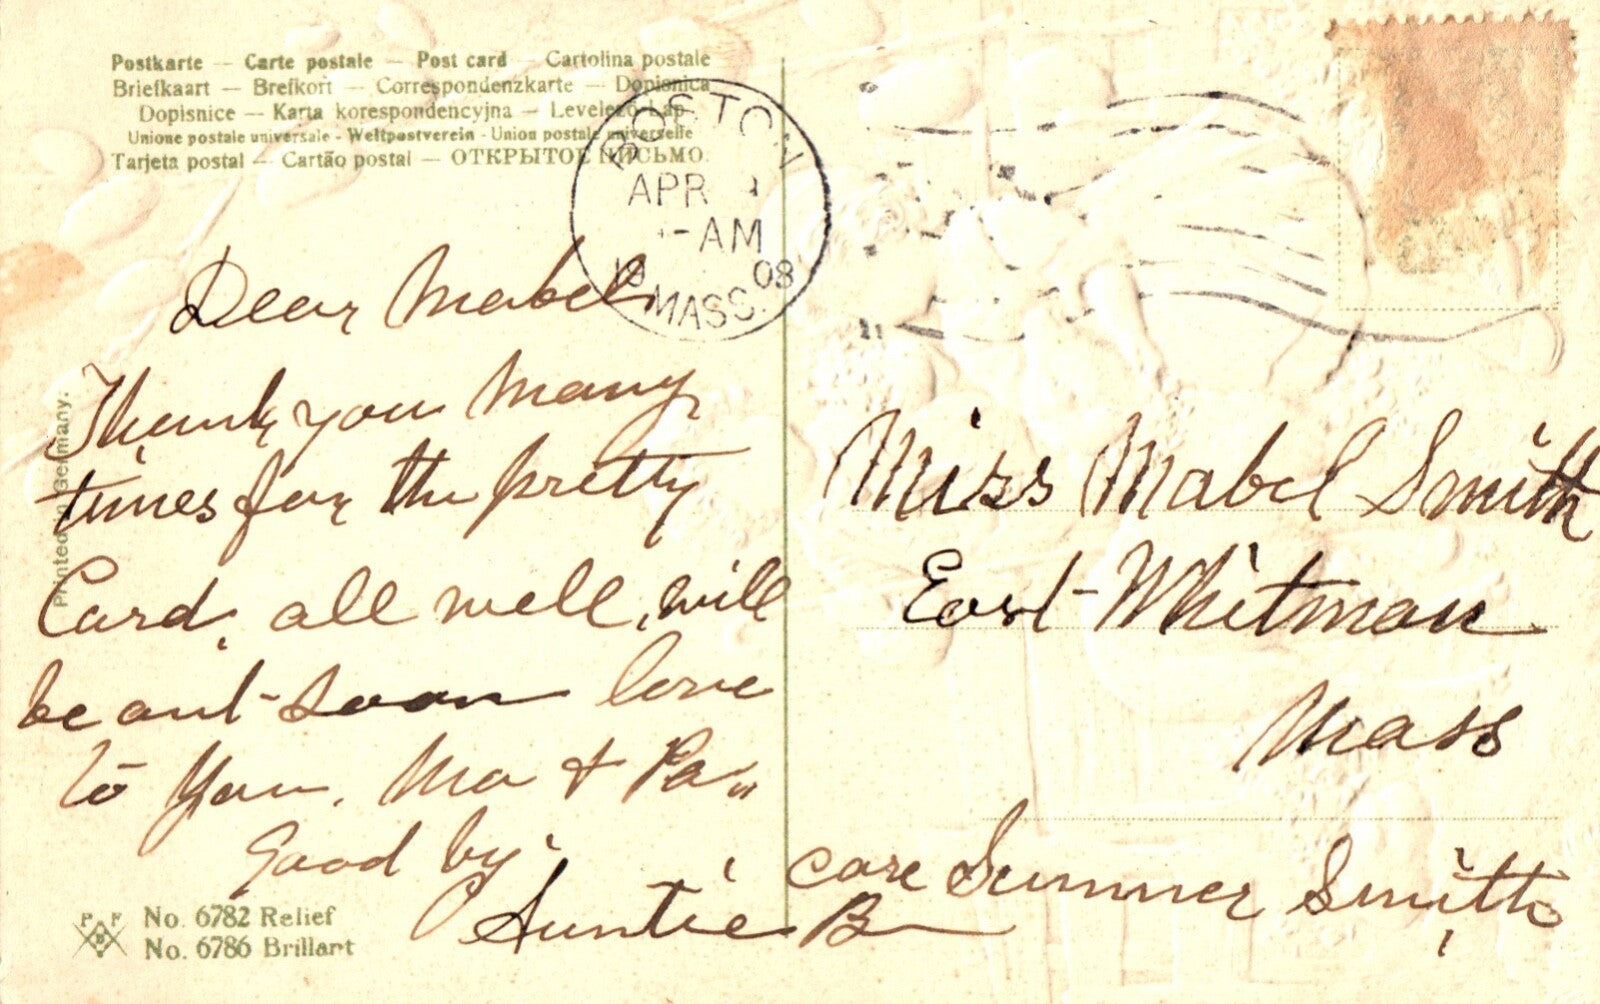 Postkarte — Carte postale — Post card — Cartolina postale
Briefkaart — Brefkort — Correspondenzkarte — Dopisnica
Dopisnice — Karta korespondencyjna — Levelező-Lap
Unione postale universale - Weltpostverein - Union postale universelle
Tarjeta postal — Cartão postal — ОТКРЫТОЕ ПИСЬМО.
BOSTON
APR
AM
19 08
MASS.
Dear Mabel
Thank you many
times for the pretty
Card, all well, will
be out soon love
to you, Ma + Pa
Good by
Auntie B
Miss Mabel Smith
East Whitman
Mass
care Sumner Smith
Printed in Germany.
P F B
No. 6782 Relief
No. 6786 Brillant